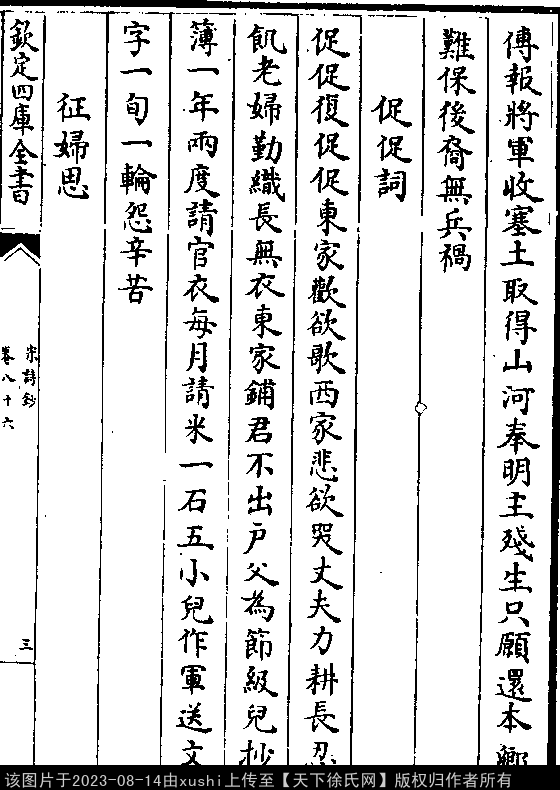 傳報將軍收塞土取得山河奉明主殘生只願還本鄉
難保後裔無兵禍
促促詞
促促復促促東家歡欲歌西家悲欲哭丈夫力耕長忍
飢老婦勤織長無衣東家鋪君不出戶父為節級兒抄
簿一年兩度請官衣每月請米一石五小兒作軍送文
字一旬一輪怨辛苦
征婦思
欽定四庫全書
宋詩鈔
卷八十六
三
该图片于2023-08-14由xushi上传至【天下徐氏网】版权归作者所有